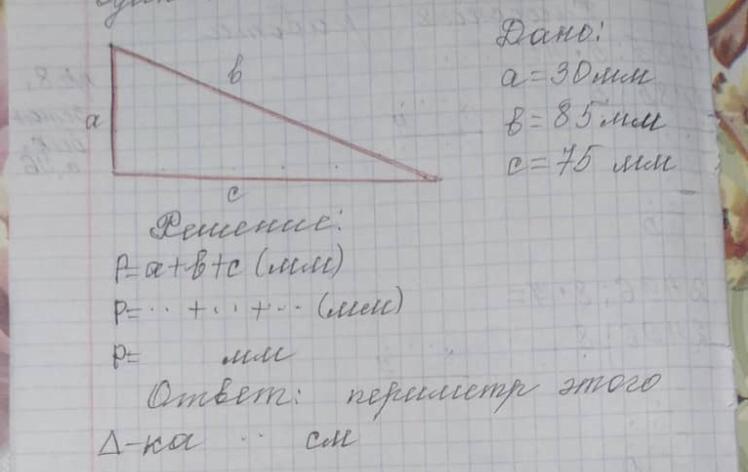 Дано:
a = 30 мм
в = 85 мм
c = 75 мм
a
в
c
Решение:
P = a + в + c (мм)
P = ·· + ·· + ·· (мм)
P = мм
Ответ: периметр этого
Δ-ка ·· см